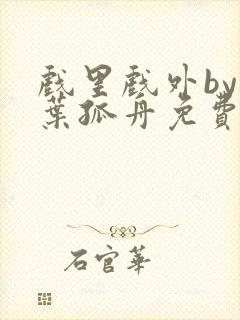 戲里戲外by
葉孤舟免費
石官華